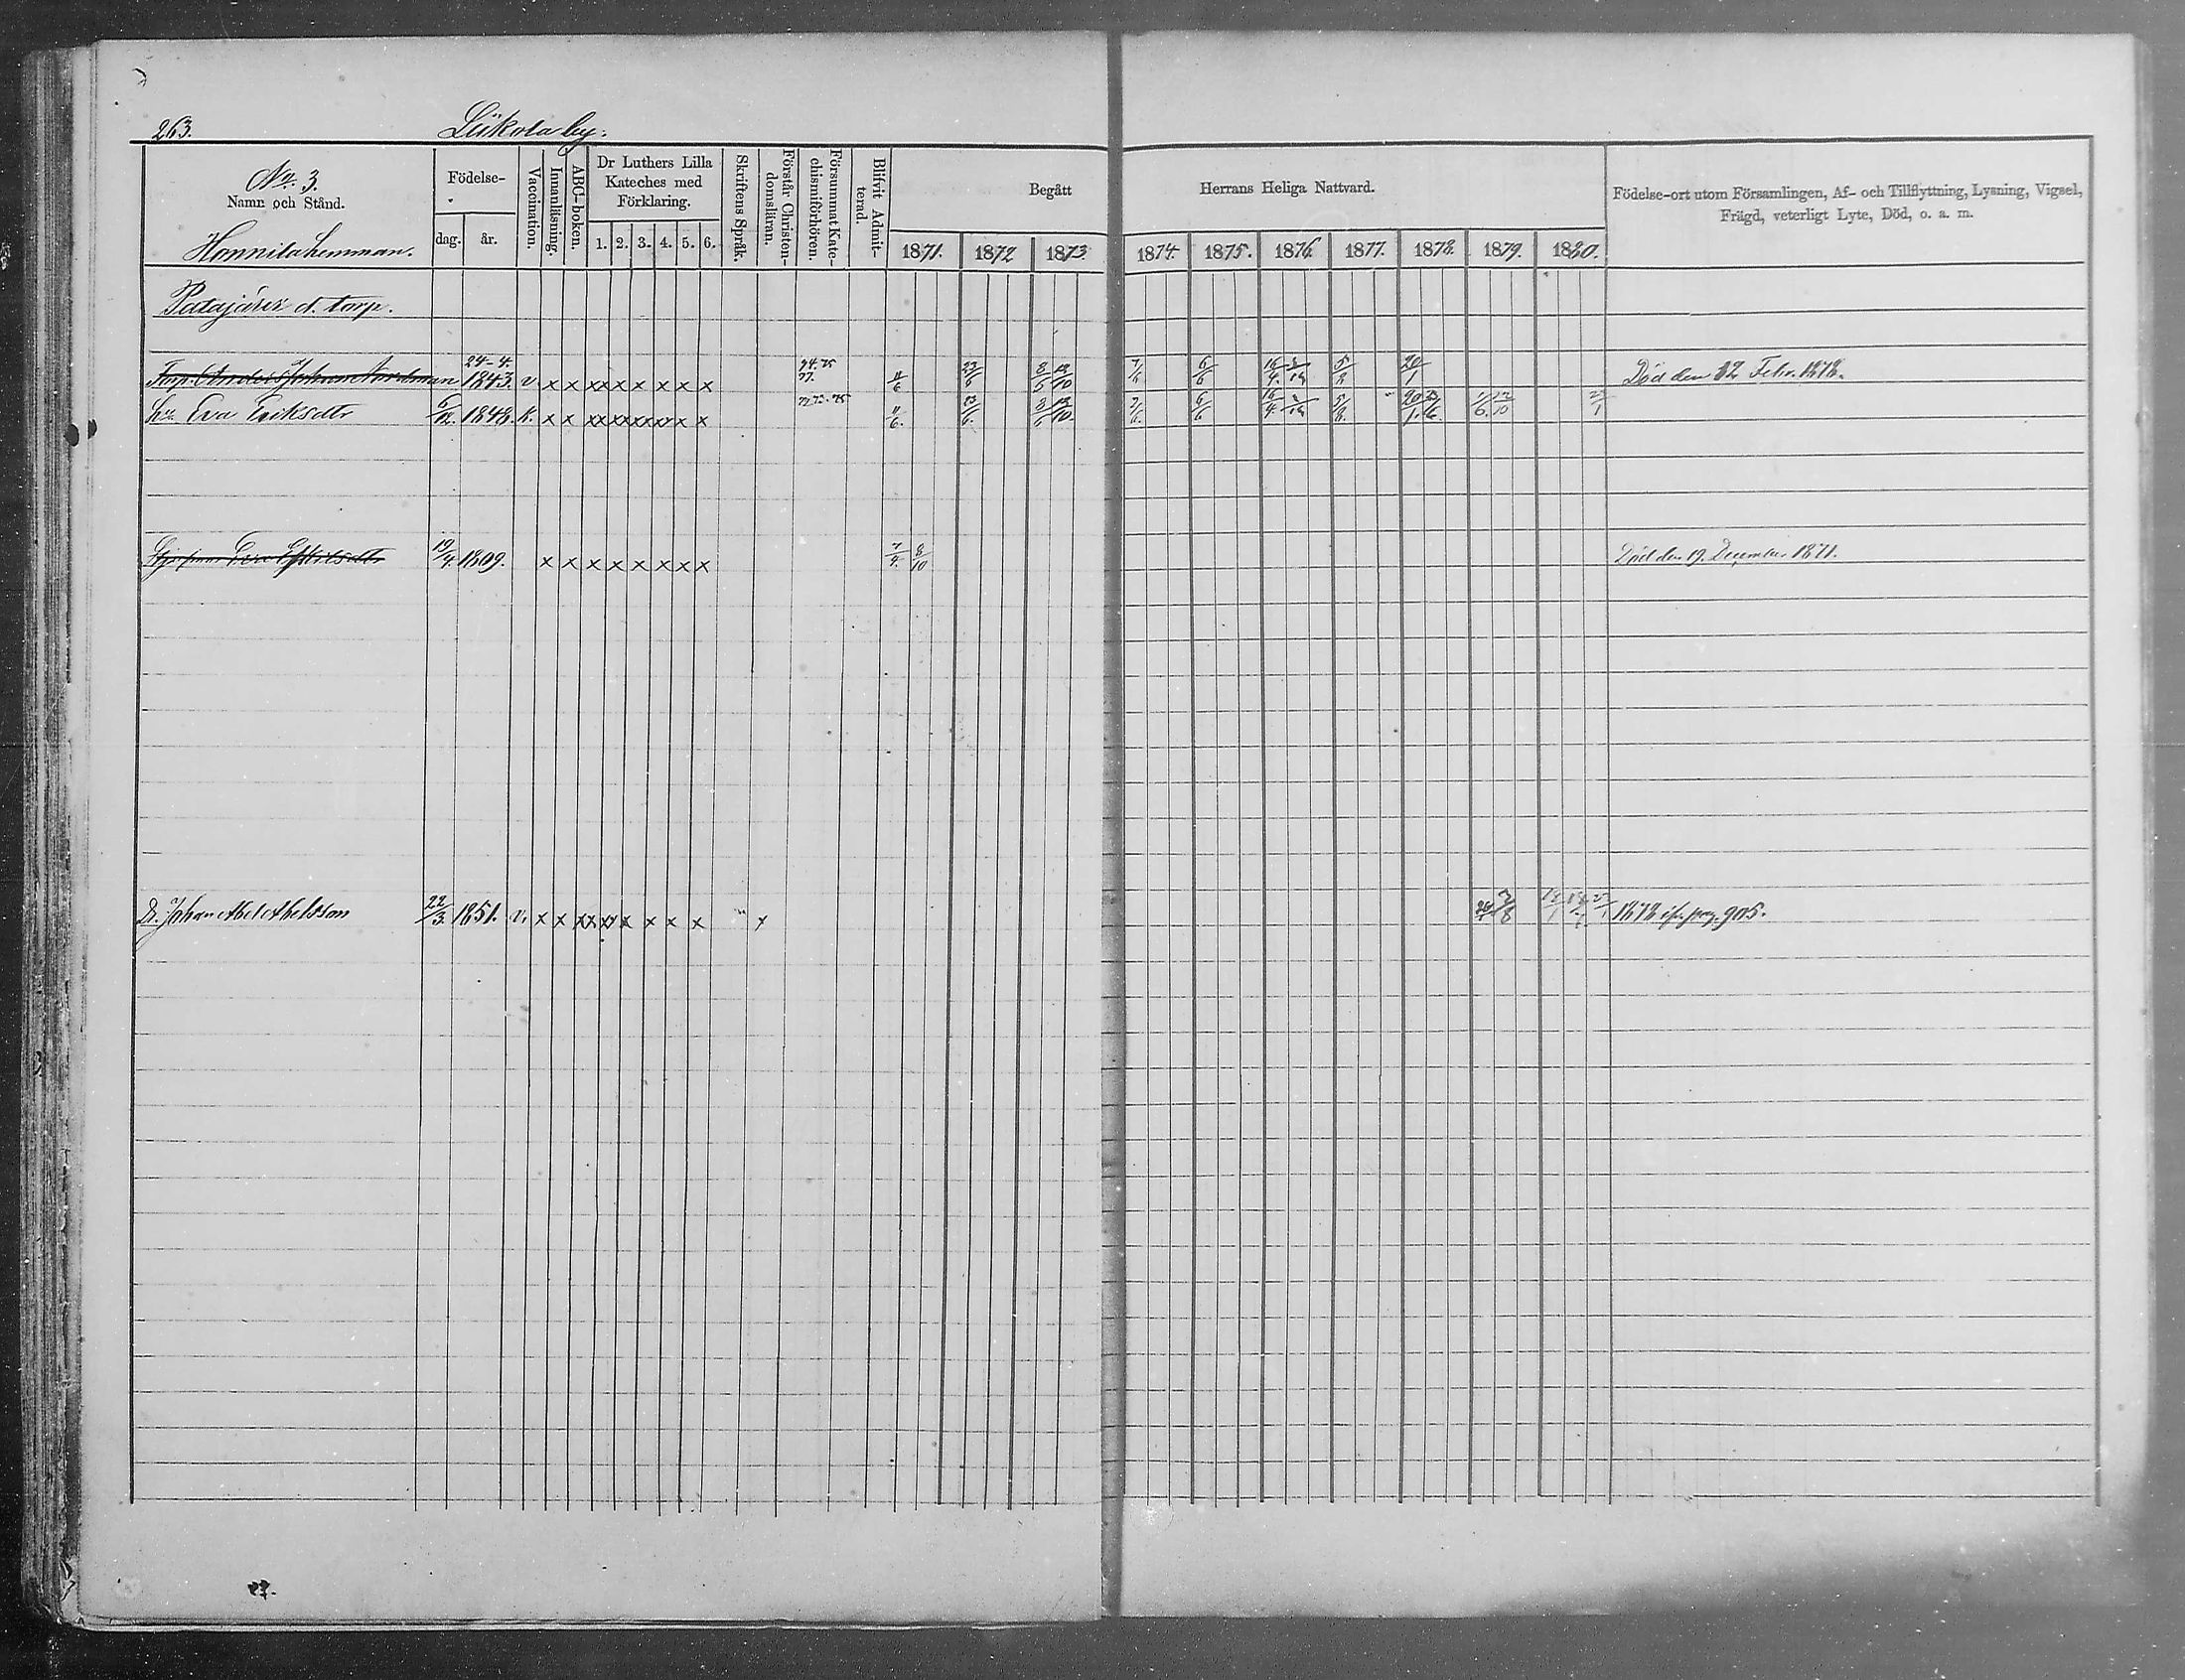 263.
Lükola by.
No. 3.
Namn och Stånd.
Honnila hemman.
Födelse-
dag. år.
Vaccination.
Innanläsning.
ABC-boken.
Dr Luthers Lilla
Kateches med
Förklaring.
1. 2. 3. 4. 5. 6.
Skriftens Språk.
Förstår Christen-
domsläran.
Försummat Kate-
chismiförhören.
Blifvit Admit-
terad.
Begått
Herrans Heliga Nattvard.
1871. 1872 1873
1874. 1875. 1876. 1877. 1878. 1879. 1880.
Födelse-ort utom Församlingen, Af- och Tillflyttning, Lysning, Vigsel,
Frägd, veterligt Lyte, Död, o. a. m.
d. torp.
Torp. Anders Johan Nordman 24-4. 1843. v. x x xx x x x x x 74. 75 77. 11/6 23/6 8/6 12/10 7/6 6/6 16/4 5/8 20/1 Död den 22 Febr. 1878.
Hu. Eva Eriksdtr 6/12. 1848. k. x x 11/6. 23/6. 8/6 12/10. 7/6. 6/6 16/4 5/8.
Eva 19/4. 1809. x x x x x x x x 7/4. 8/10 Död den 19. December 1871.
Dr. Johan Abel Abelsson 22/3. 1851. v. x x xx x x x x x x 3/8 1878 ifr. pag. 905.